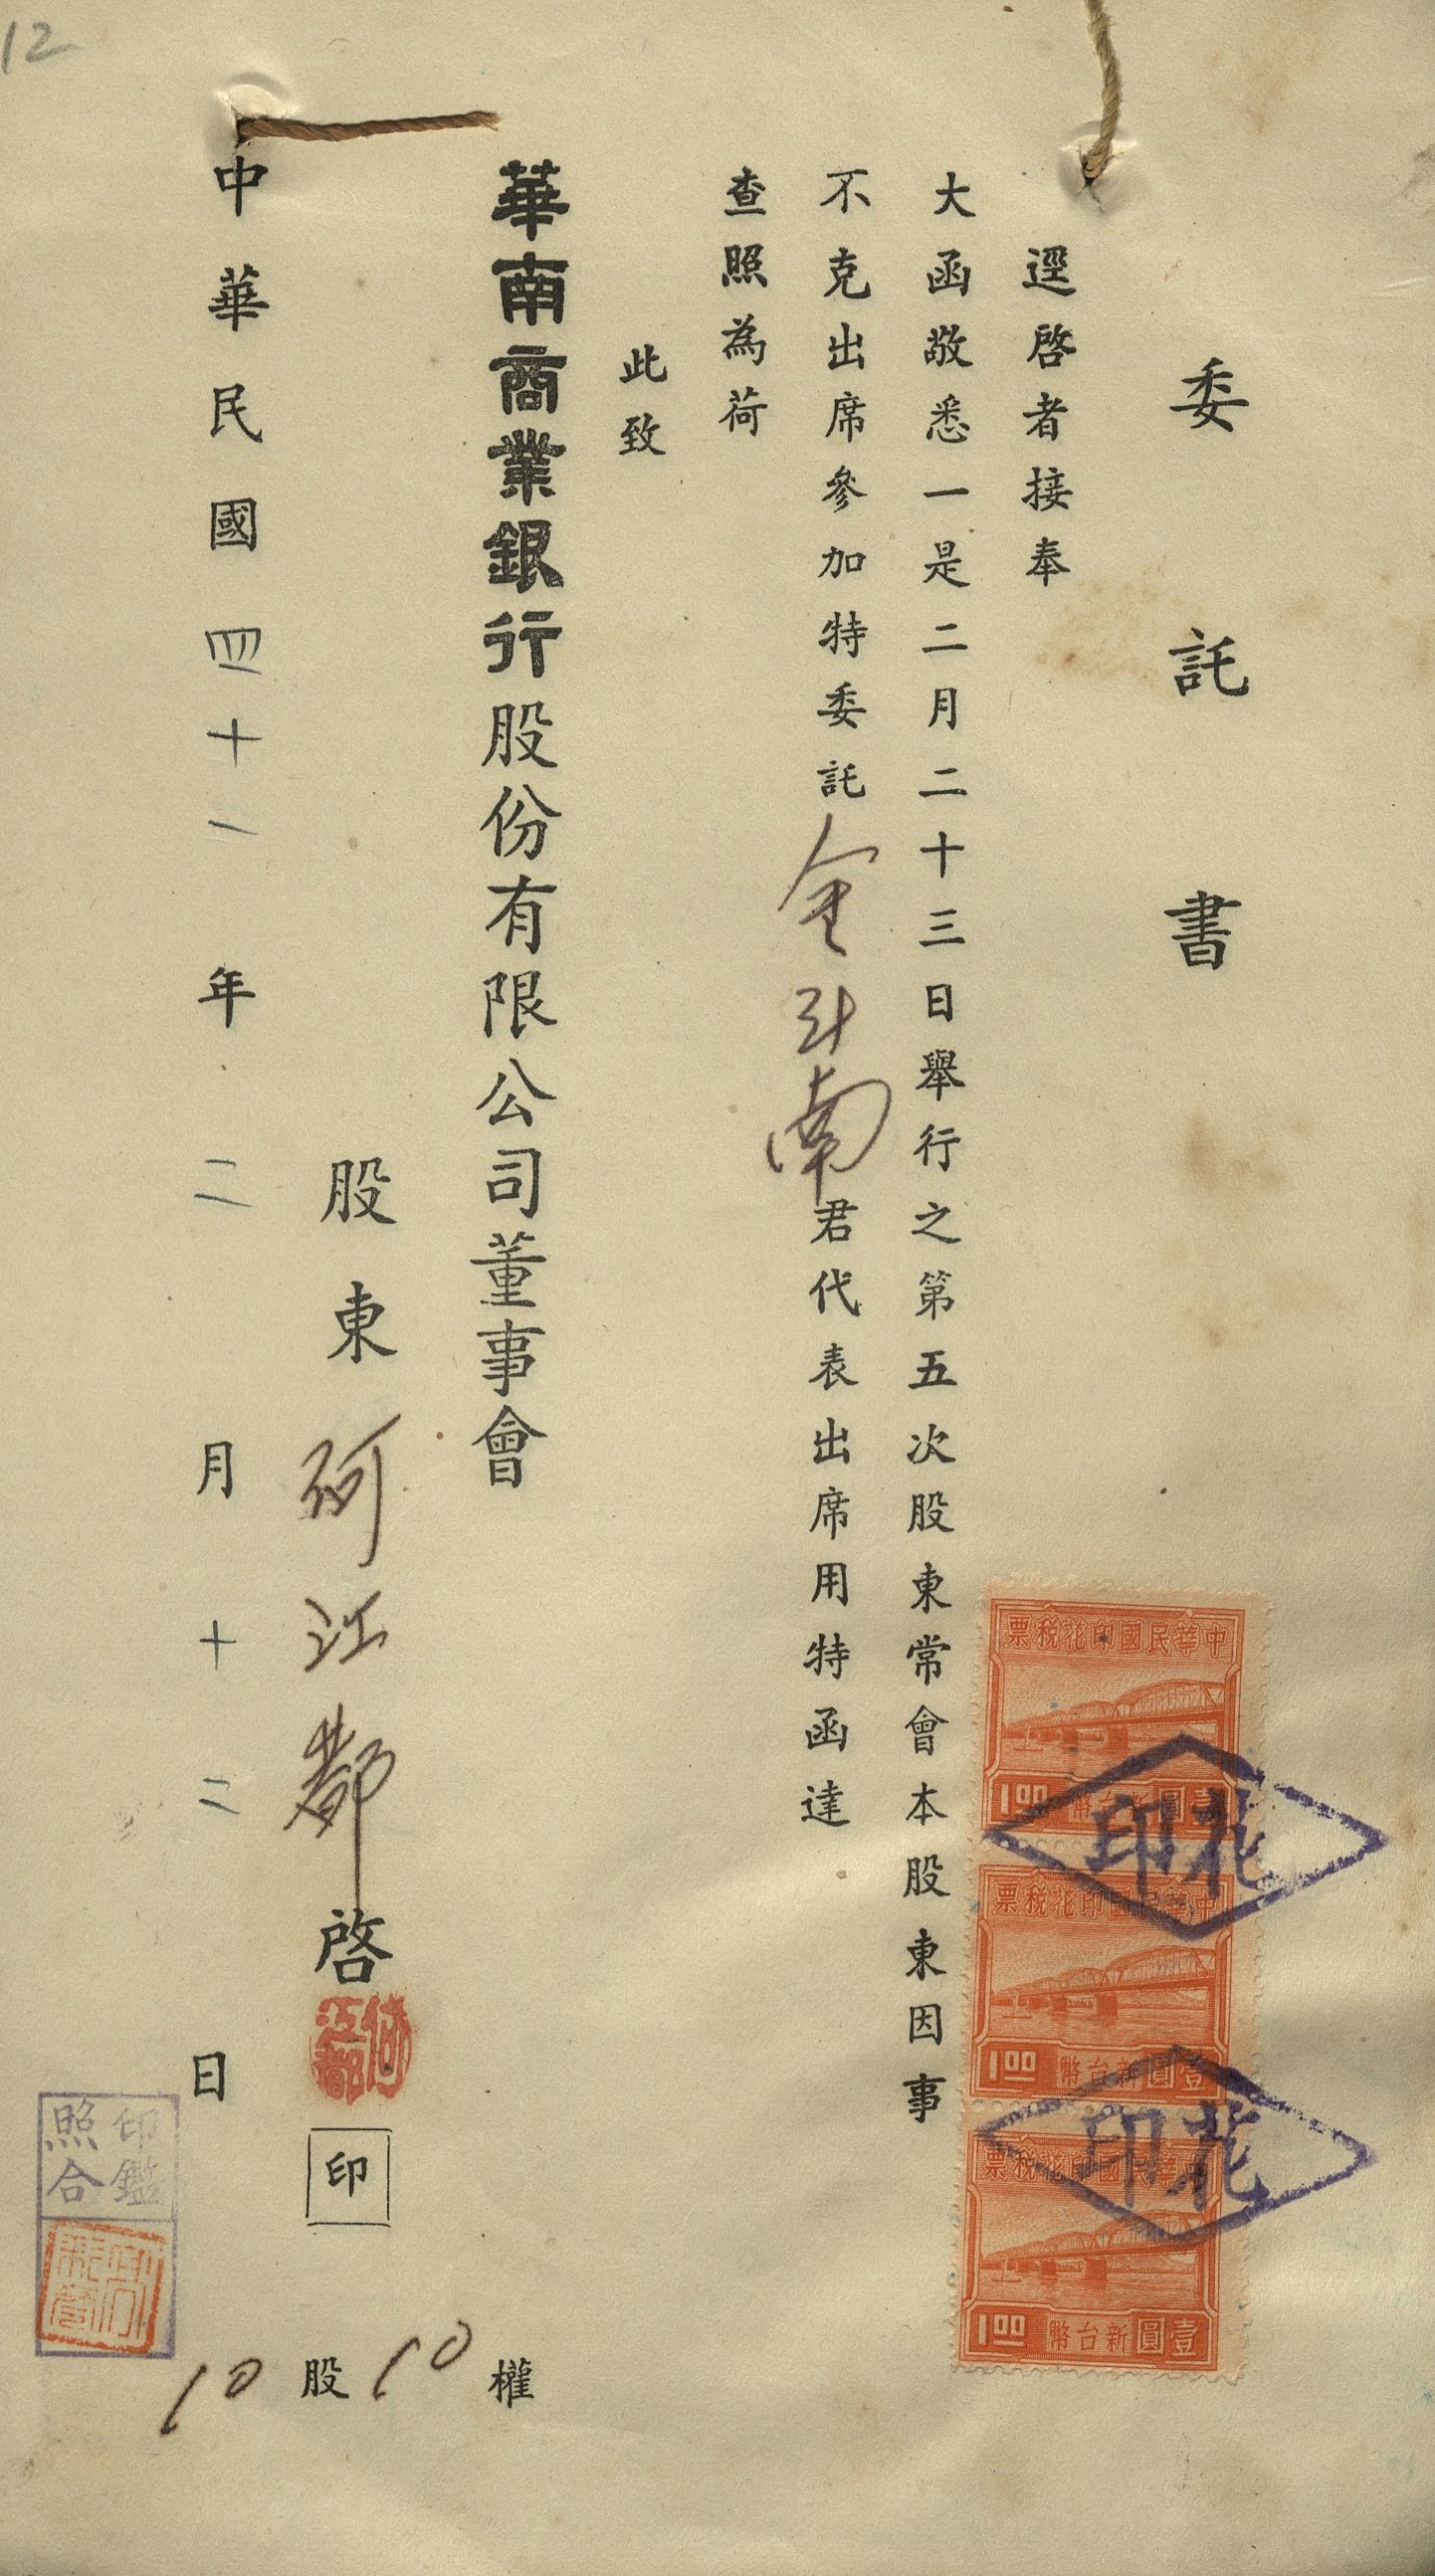 12
委託書
逕啓者接奉
大函敬悉一是二月二十三日舉行之第五次股東常會本股東因事
不克出席參加特委託金斗南君代表出席用特函達
查照為荷
此致
華南商業銀行股份有限公司董事會
股東何江都啓
何江都
印
中華民國四十一年二月十二日
10股10權
印鑑
照合
中華民國印花稅票
1.00 新台幣壹圓
印花
中華民國印花稅票
1.00 新台幣壹圓
印花
中華民國印花稅票
1.00 新台幣壹圓